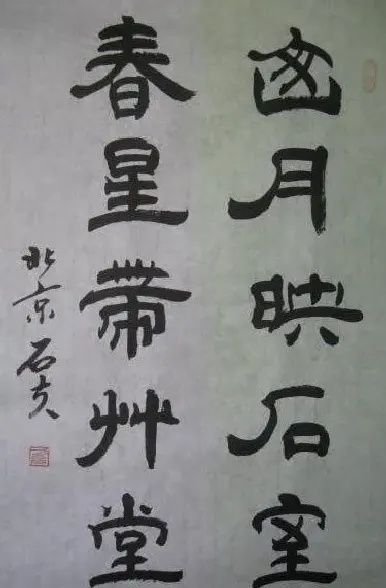 囱月映石室
春星帶艸堂
北京石夫